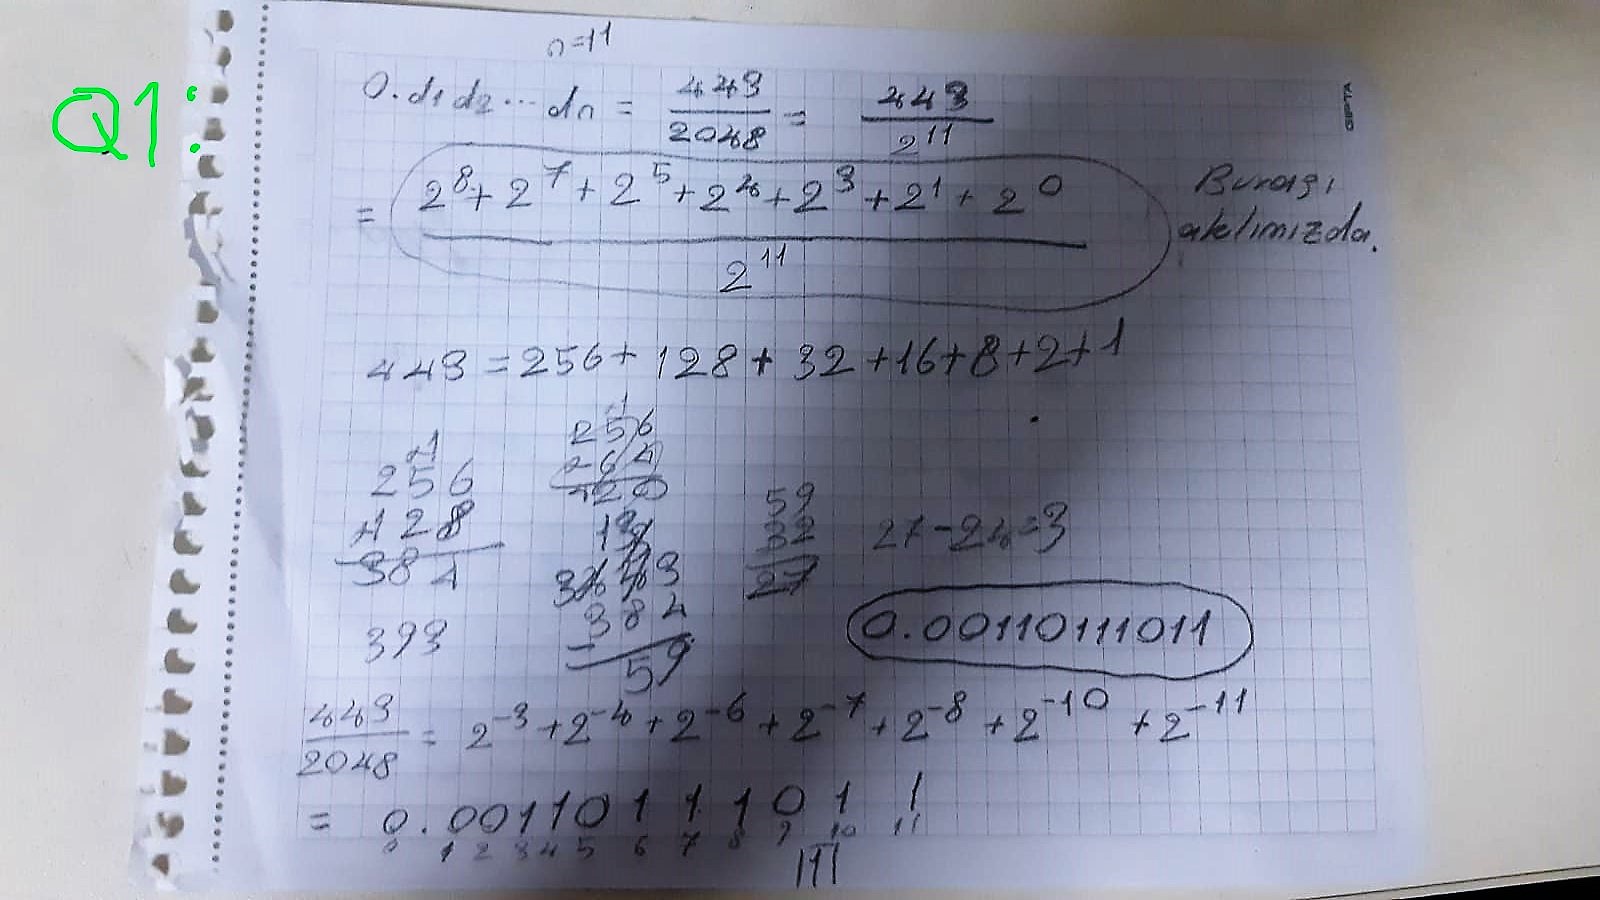 Q1:
n=11
0.d1d2...dn = 443/2048 = 443/2^11
= (2^8+2^7+2^5+2^4+2^3+2^1+2^0)/2^11
Burası
aklımızda.
443 = 256+128+32+16+8+2+1
256
128
384
393
256
384
59
59
32
27
27-24=3
0.00110111011
443/2048 = 2^-3+2^-4+2^-6+2^-7+2^-8+2^-10+2^-11
= 0.00110111011
0 1 2 3 4 5 6 7 8 9 10 11
GIPTA